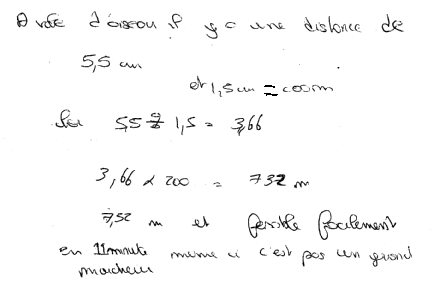 A vole d'oiseau il y a une distance de
5,5 cm
et 1,5 cm = 200 m
5,5 ÷ 1,5 = 3,66
3,66 x 200 = 732 m
7,32 m et facilement
en 11 minute meme si c'est pas un grand
marcheur